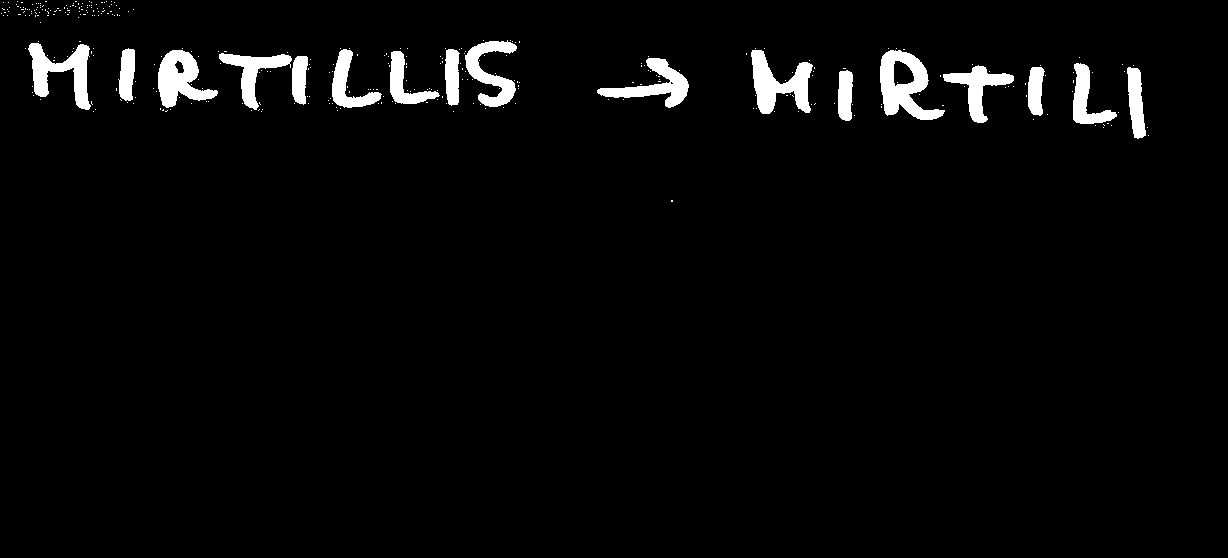 MIRTILLIS → MIRTILI